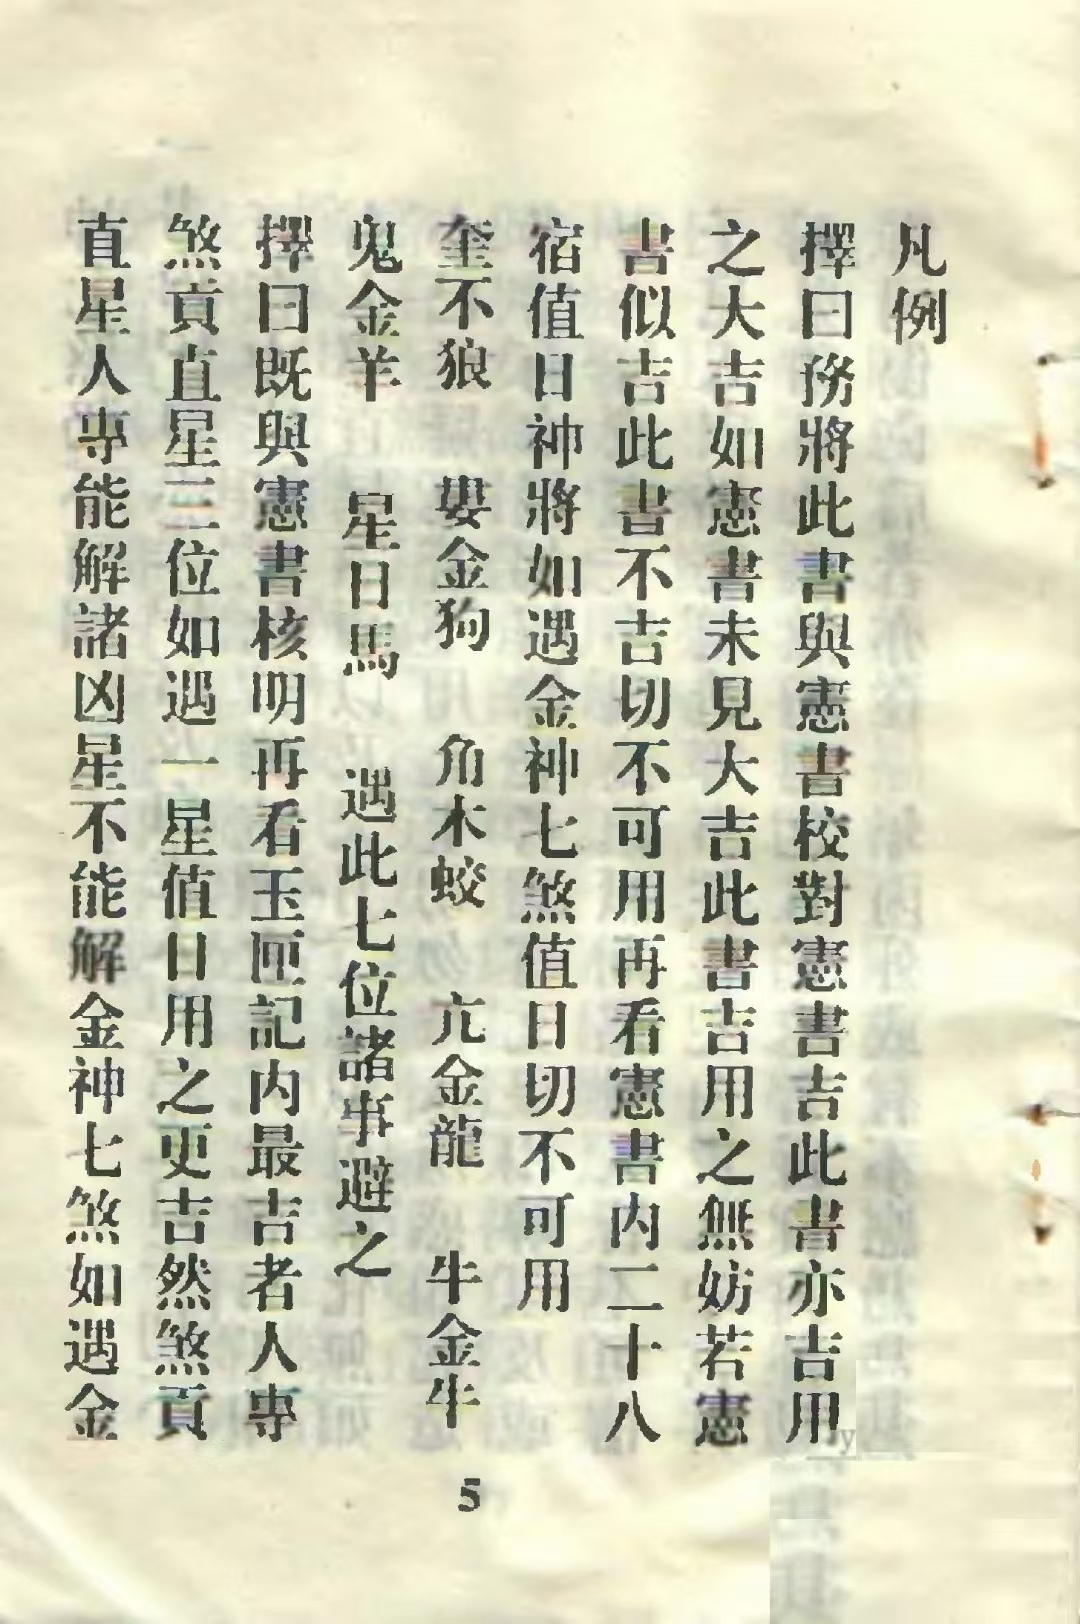 凡例
擇日務將此書與憲書校對憲書吉此書亦吉用
之大吉如憲書未見大吉此書吉用之無妨若憲
書似吉此書不吉切不可用再看憲書内二十八
宿值日神將如遇金神七煞值日切不可用
奎不狼　婁金狗　角木蛟　亢金龍　牛金牛
鬼金羊　星日馬　遇此七位諸事避之
擇日既與憲書核明再看玉匣記内最吉者人專
煞貢直星三位如遇一星值日用之更吉然煞貢
直星人專能解諸凶星不能解金神七煞如遇金
5